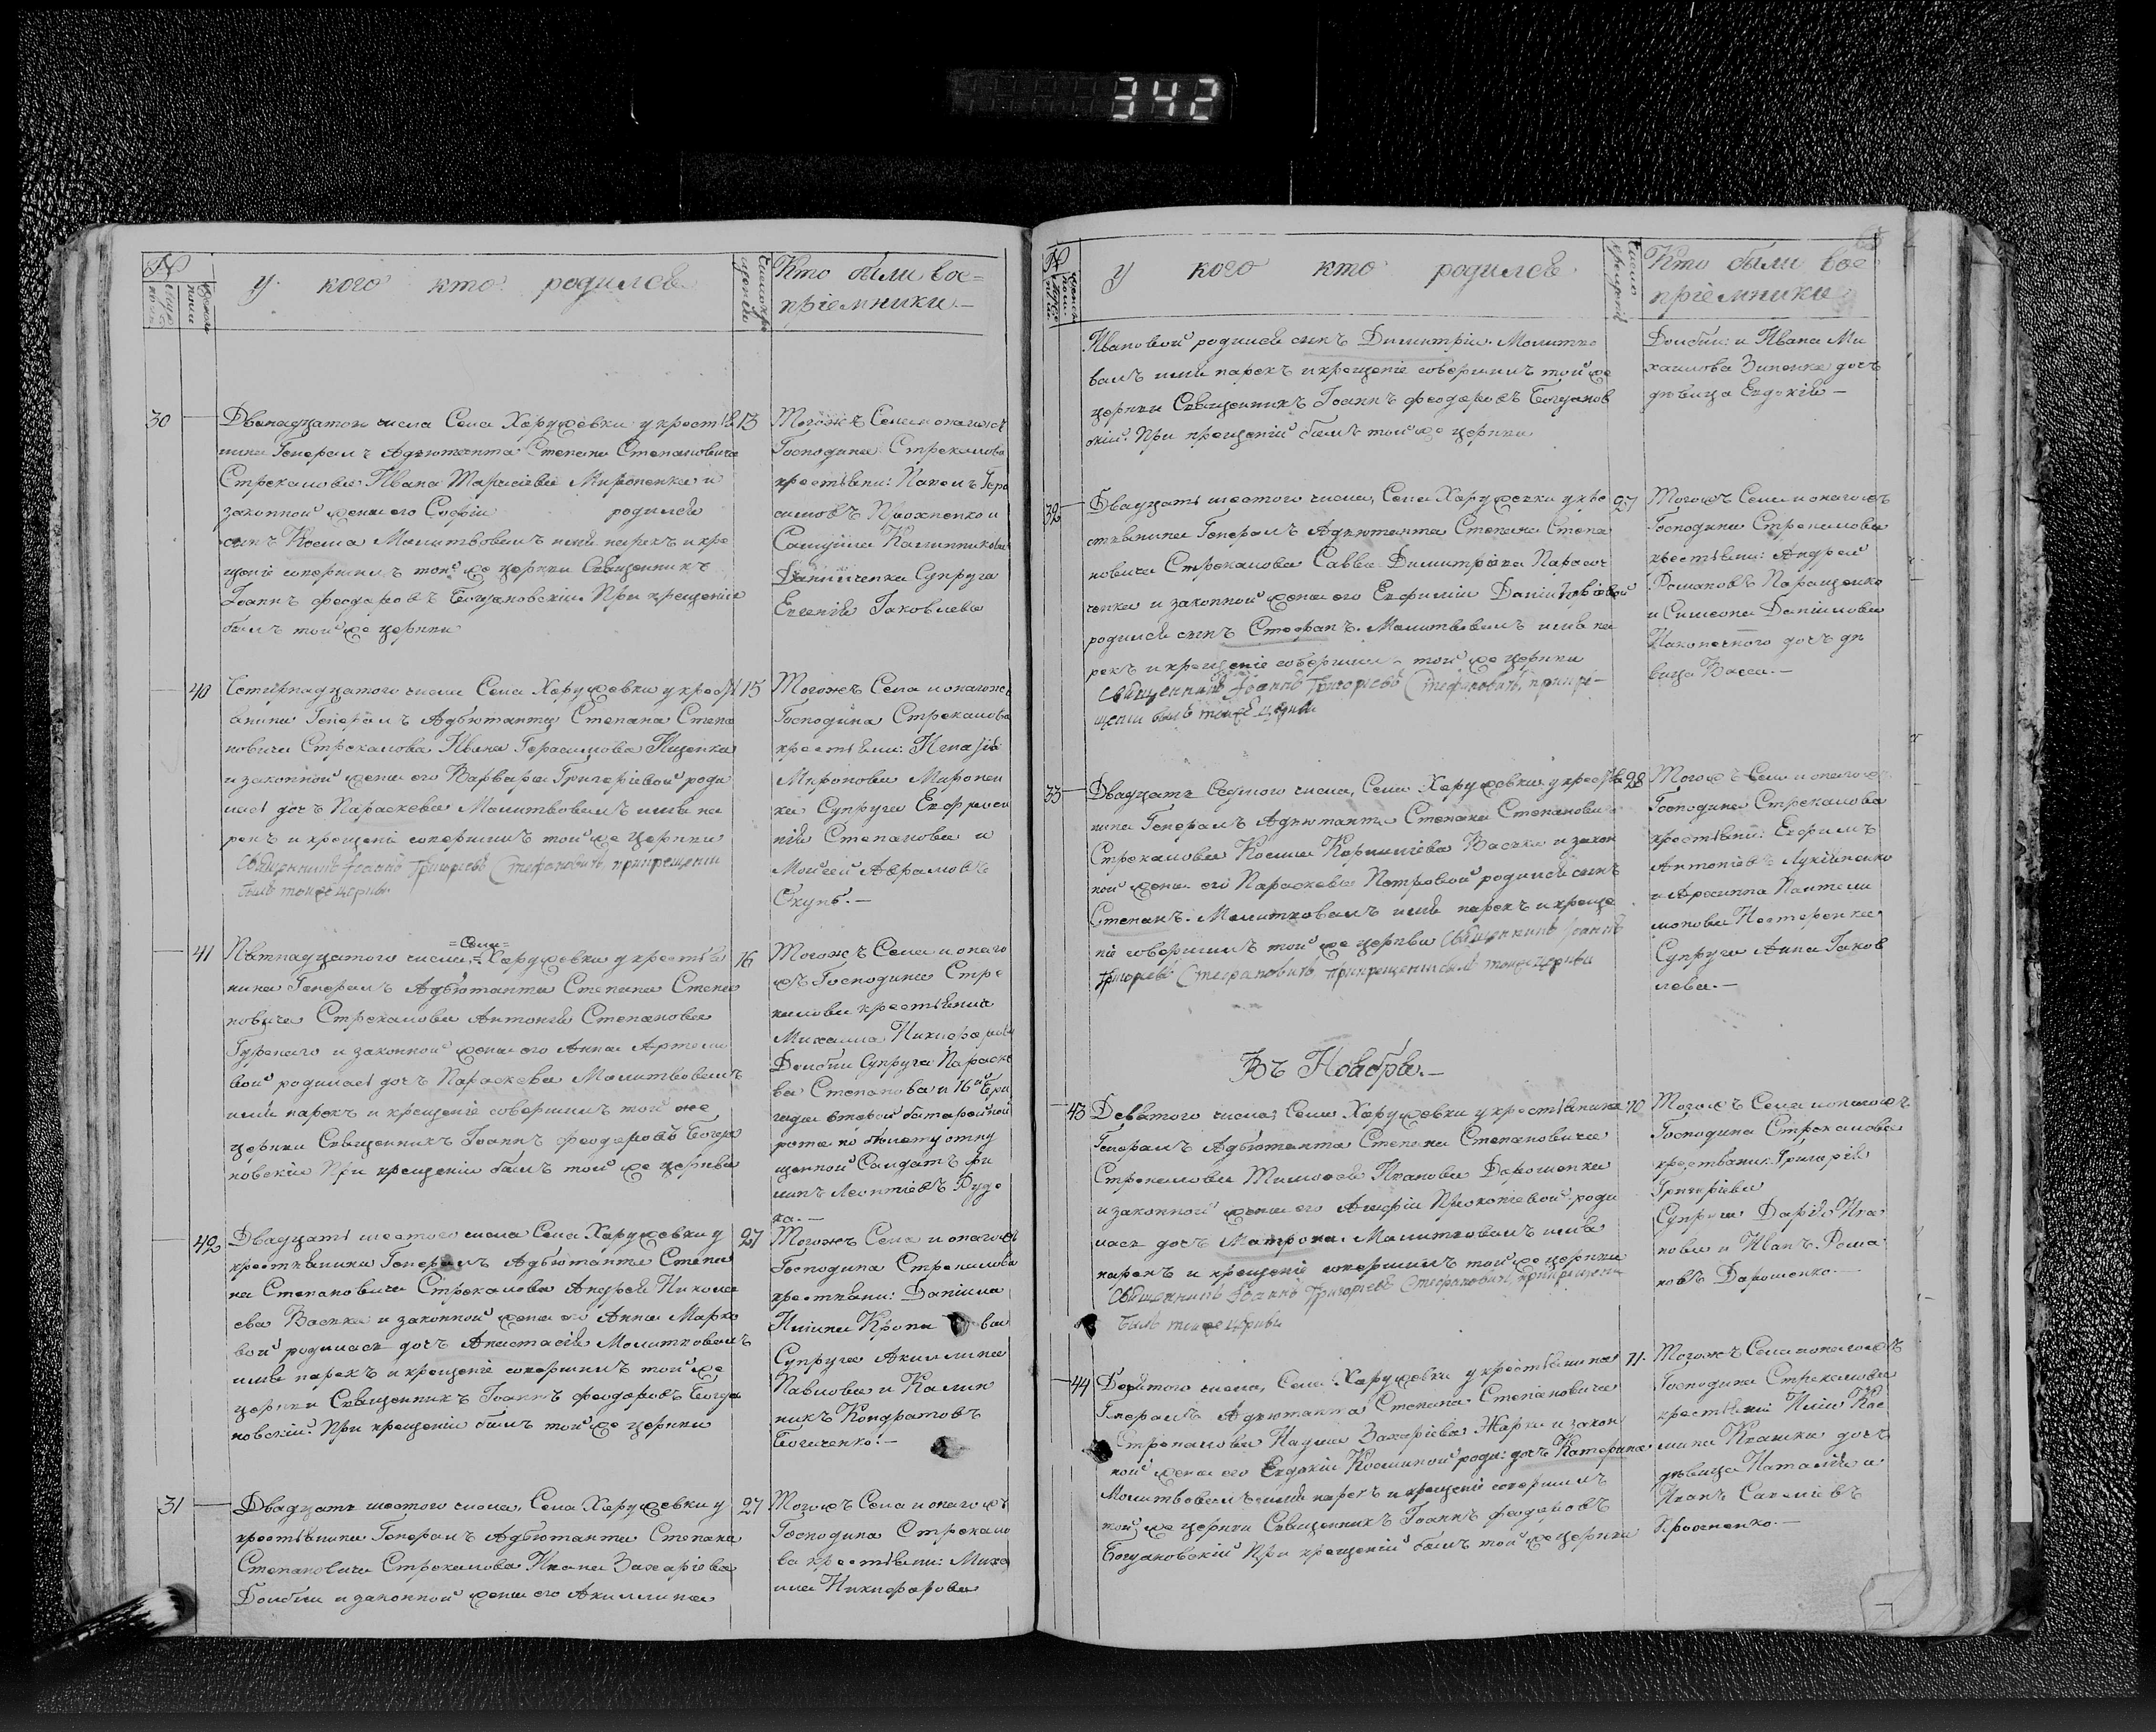 342
№
У кого кто родился
Кто были вос=
пріемники.—
30
Двенадцатого числа Села Харужевки у крестья 13
нина Генералъ Адъютанта Степана Степановича
Стрекалова Ивана Тарасіева Мироненка и
законной жены его Софіи родился
сынъ Косма Молитвовалъ имя нарекъ и кре
щеніе совершилъ той же церкви Священникъ
Іоаннъ Феодоровъ Богдановскій. При крещеніи
былъ той же церкви
Тогожъ Села и онагожъ
Господина Стрекалова
крестьяне: Павелъ Гера
симовъ Прохненко и
Самуила Калинникова
Данильченка Супруга
Евгенія Іаковлева
40
Четырнадцатого числа Села Харужевки у кресть 15
янина Генералъ Адъютанта Степана Степа
новича Стрекалова Ивана Герасимова Ищенка
и законной жены его Варвары Григоріевой роди
лась дочь Параскева Молитвовалъ имя на
рекъ и крещеніе совершилъ той же Церкви
Священникъ Іоаннъ Григорьевъ Стефановичъ, при крещеніи
былъ тойже церкви
Тогожъ Села и онагожъ
Господина Стрекалова
крестьяне: Игнатія
Миронова Миронен
ка Супруга Евфроси
нія Степанова и
Мойсей Аврамовъ
Окунь.—
=Села=
41
Пятнадцатого числа, Харужевки у крестья 16
нина Генералъ Адъютанта Степана Степа
новича Стрекалова Антонія Степанова
и законной жены его Анны Артемо
вой родилась дочь Параскева Молитвовалъ
имя нарекъ и крещеніе совершилъ той же
церкви Священникъ Іоаннъ Феодоровъ Богда
новскій При крещеніи былъ той же церкви
Тогожъ Села и онаго
жъ Господина Стре
калова крестьянина
Михаила Никифорова
Долбни Супруга Параске
ва Степанова и 16й Бри
гады второй батарейной
роты по билету отпу
щенной Салдатъ Фи
липъ Леонтіевъ Руде
ка.—
42
Двадцать шестого числа Села Харужевки у 27
крестьянина Генералъ Адъютанта Степа
на Степановича Стрекалова Андрея Никола
ева Васька и законной жены его Анны Марко
вой родилась дочь Анастасія Молитвовалъ
имя нарекъ и крещеніе совершилъ той же
церкви Священникъ Іоаннъ Феодоровъ Богда
новскій. При крещеніи былъ той же церкви
Тогожъ Села и онагожъ
Господина Стрекалова
крестьяне: Даніила
Супруга Акилина
Павлова и Калин
никъ Кондратовъ
Богиченко.—
31
Двадцать шестого числа, Села Харужевки у 27
крестьянина Генералъ Адъютанта Степана
Степановича Стрекалова Ивана Захаріева
Долбни и законной жены его Акилины
Тогожъ Села и онагожъ
Господина Стрекало
ва крестьяне: Миха
ила Никифорова
№
У кого кто родился
Кто были вос
пріемники
Ивановой родился сынъ Димитрій. Молитво
валъ имя нарекъ и крещеніе совершилъ той же
церкви Священникъ Іоаннъ Феодоровъ Богданов
скій. При крещеніи былъ той же церкви
Долбни: и Ивана Ми
хаилова Зиненка дочь
девица Евдокія—
32
Двадцать шестого числа, Села Харужевки у кре 27
стьянина Генералъ Адъютанта Степана Степа
новича Стрекалова Саввы Димитріева Парасо
ченка и законной жены его Евфиміи Даніиловой
родился сынъ Стефанъ. Молитвовалъ имя на
рекъ и крещеніе совершилъ той же церкви
Священникъ Іоаннъ Григорьевъ Стефановичъ, при кре-
щеніи былъ тойже церкви
Тогожъ Села и онагожъ
Господина Стрекалова
крестьяне: Андрей
Романовъ Паращенко
и Симеона Даніилова
Наконечного дочь де
вица Васса.—
33
Двадцать Седмого числа, Села Харужевки у крестья 28
нина Генералъ Адъютанта Степана Степанови
Стрекалова Космы Корниліева Васька и закон
ной жены его Параскевы Петровой родился сынъ
Степанъ. Молитвовалъ имя нарекъ и креще
ніе совершилъ той же церкви Священникъ Іоаннъ
Григорьевъ Стефановичъ при крещеніи былъ тойже церкви
Тогожъ Села и онагожъ
Господина Стрекалова
крестьяне: Ефремъ
Антоніевъ Лукіяненко
и Архиппа Пантели
монова Нестеренка
Супруга Анна Іаков
лева.—
Въ Ноябре.—
43
Девятого числа, Села Харужевки у крестьянина 10
Генералъ Адъютанта Степана Степановича
Стрекалова Тимофея Иванова Дарошенка
и законной жены его Агафіи Прокопіевой роди
лась дочь Матрона. Молитвовалъ имя
нарекъ и крещеніе совершилъ той же церкви
Священникъ Іоаннъ Григорьевъ Стефановичъ, при крещеніи
былъ тойже церкви
Тогожъ Села и онагожъ
Господина Стрекалова
крестьяне: Григорія
Григоріева
Супруга Дарія Ива
нова и Иванъ Рома
новъ Дарошенко—
44
Десятого числа, Села Харужевки у крестьянина 11.
Генералъ Адъютанта Степана Степановича
Стрекалова Наума Захаріева Жарка и закон
ной жены его Евдокіи Косминой роди: дочь Катерина
Молитвовалъ имя нарекъ и крещеніе совершилъ
той же церкви Священникъ Іоаннъ Феодоровъ
Богдановскій При крещеніи былъ той же церкви
Тогожъ Села и онагожъ
Господина Стрекалова
крестьяне: Иліи Кос
мина Ивашка дочь
девица Наталія и
Иванъ Савеліевъ
Прохненко.—